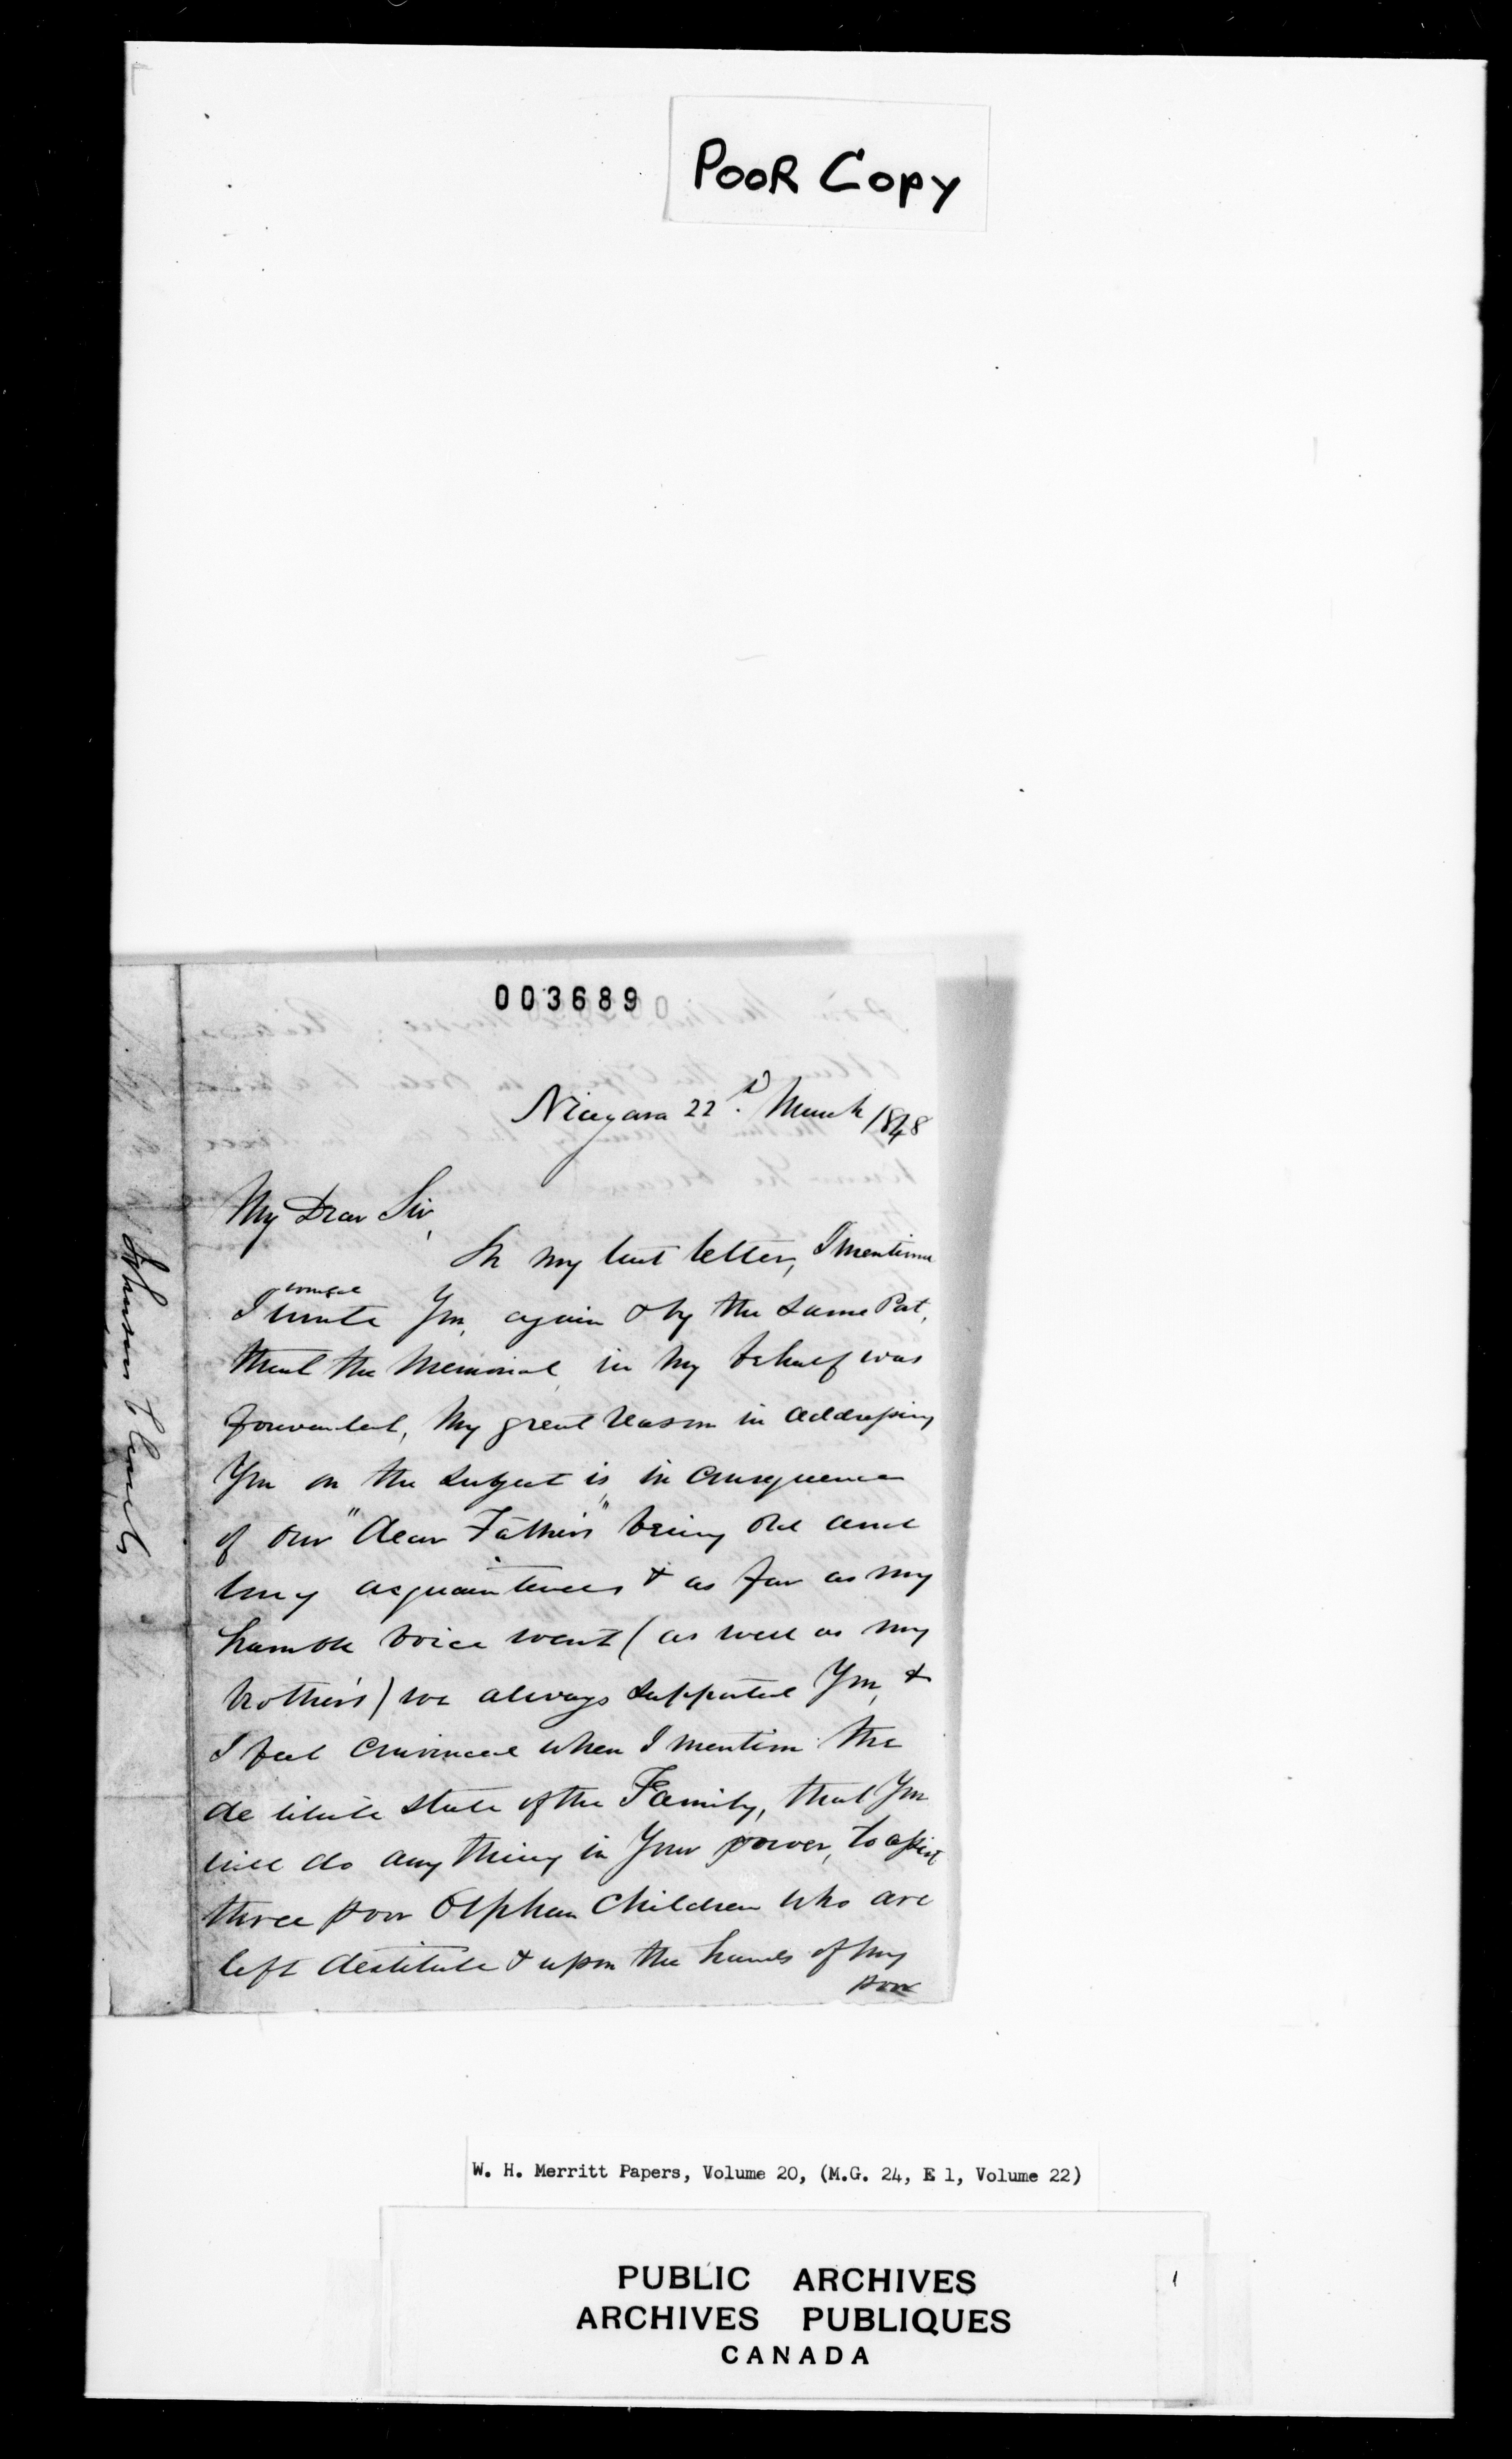 POOR COPY
003689
Niagara 22d. March 1848
My Dear Sir,
In my last letter, I mention
I would
write You, again & by the same Post,
that the Memorial in my behalf was
forwarded, My great reason in addressing
You on the subject is, in consequence
of our "dear Fathers" being old and
long acquaintences & as far as my
humble voice went (as well as my
brothers) we always supported You, &
I feel convinced when I mention the
de titute state of the Family, that You
will do any thing in Your power, to assist
three poor Orphan Children who are
left destitute & upon the hands of my
poor
Johnson
W. H. Merritt Papers, Volume 20, (M.G. 24, E 1, Volume 22)
PUBLIC ARCHIVES
ARCHIVES PUBLIQUES
CANADA
1